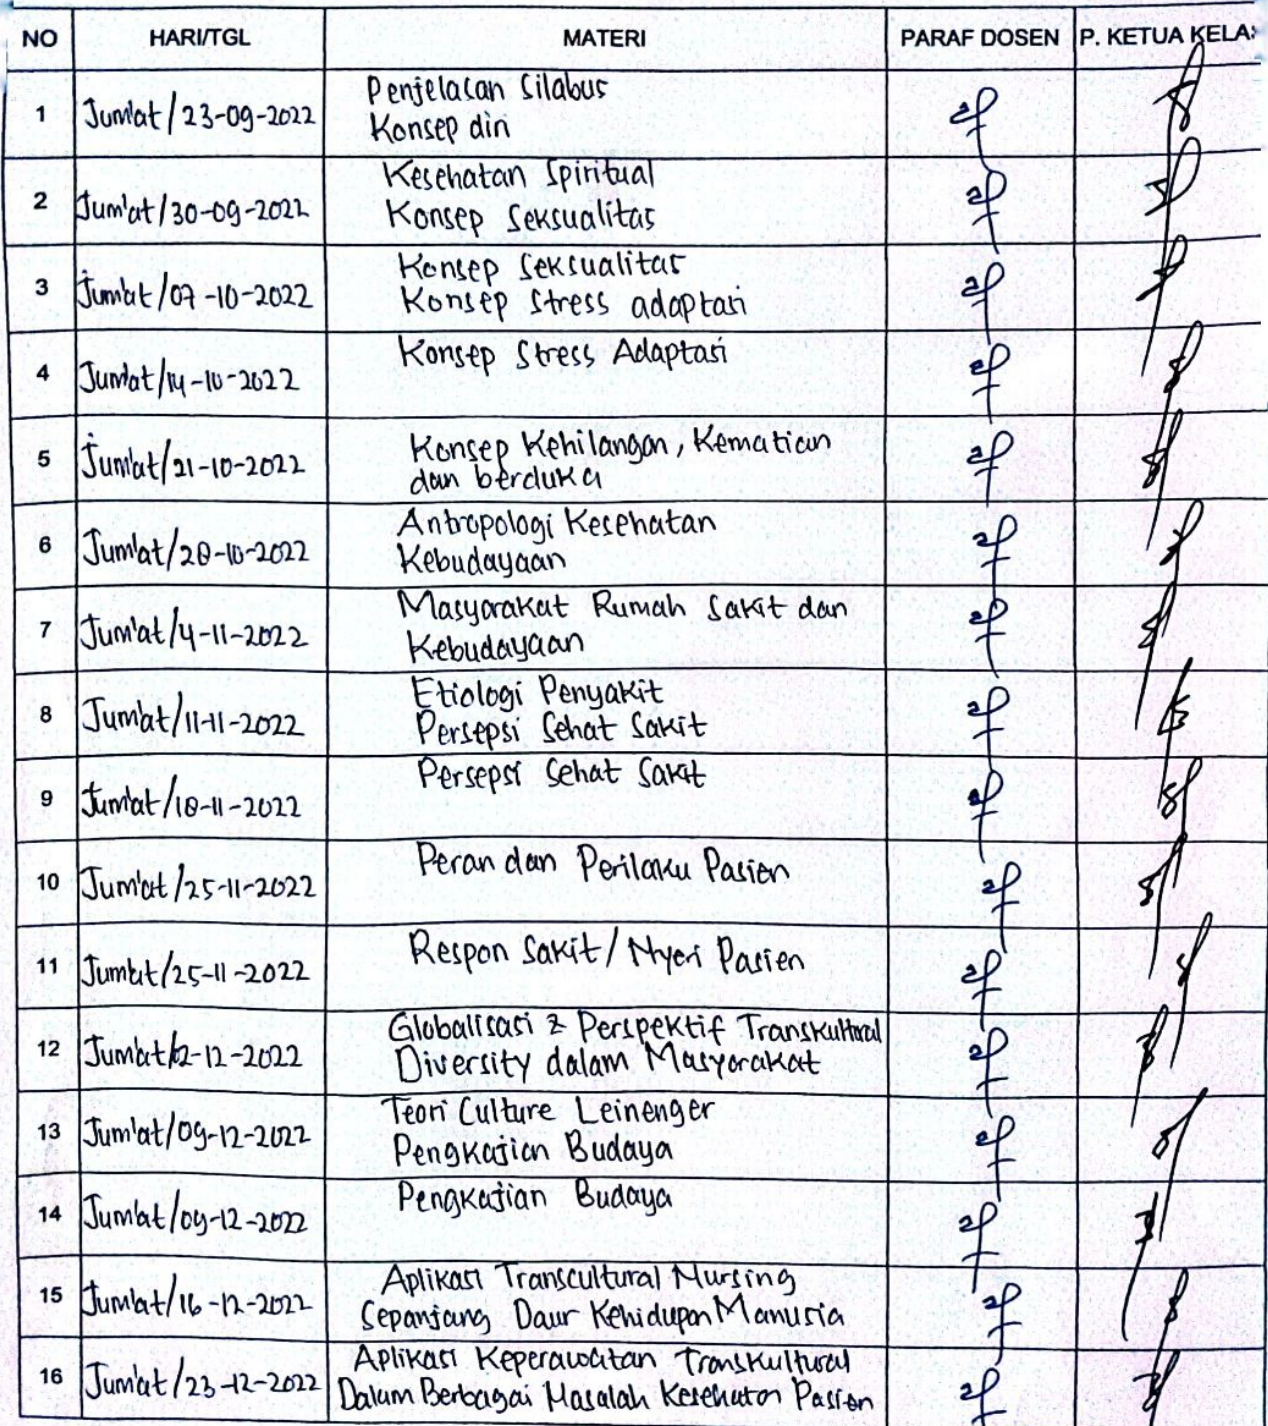 NO HARI/TGL MATERI PARAF DOSEN P. KETUA KELAS
1 Jum'at/23-09-2022 Penjelasan Silabus
Konsep diri
2 Jum'at/30-09-2022 Kesehatan Spiritual
Konsep Seksualitas
3 Jum'at/07-10-2022 Konsep Seksualitas
Konsep Stress adaptasi
4 Jum'at/14-10-2022 Konsep Stress Adaptasi
5 Jum'at/21-10-2022 Konsep Kehilangan, Kematian
dan berduka
6 Jum'at/28-10-2022 Antropologi Kesehatan
Kebudayaan
7 Jum'at/4-11-2022 Masyarakat Rumah Sakit dan
Kebudayaan
8 Jum'at/11-11-2022 Etiologi Penyakit
Persepsi Sehat Sakit
9 Jum'at/18-11-2022 Persepsi Sehat Sakit
10 Jum'at/25-11-2022 Peran dan Perilaku Pasien
11 Jum'at/25-11-2022 Respon Sakit/Nyeri Pasien
12 Jum'at/2-12-2022 Globalisasi & Perspektif Transkultural
Diversity dalam Masyarakat
13 Jum'at/09-12-2022 Teori Culture Leinenger
Pengkajian Budaya
14 Jum'at/09-12-2022 Pengkajian Budaya
15 Jum'at/16-12-2022 Aplikasi Transcultural Nursing
Sepanjang Daur Kehidupan Manusia
16 Jum'at/23-12-2022 Aplikasi Keperawatan Transkultural
Dalam Berbagai Masalah Kesehatan Pasien